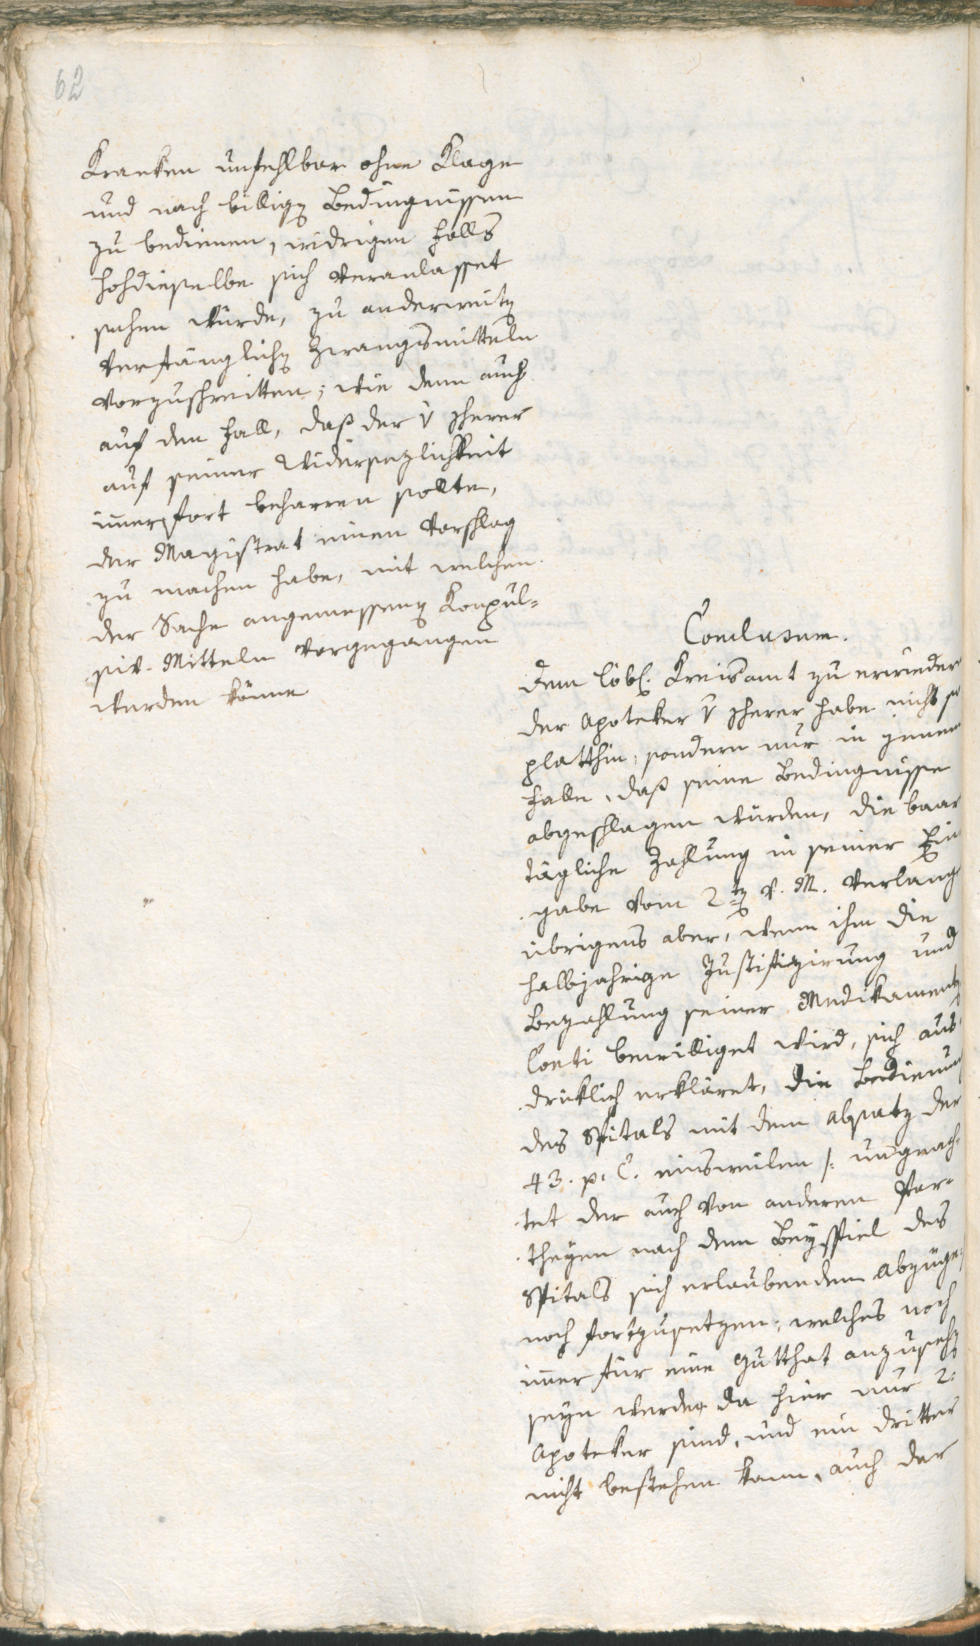 62
Kranken unfehlbar ohne Klage
und nach billigen Bedingnissen
zu bedienen, widrigen Falls
hochdieselbe sich veranlasset
sehen würde, zu anderweiten
verfänglichen Zwangsmitteln
vorzuschreitten; wie denn auch
auf den Fall, daß der
auf seiner Widersezlichkeit
imerfort beharren sollte,
der Magistrat einen Vorschlag
zu machen habe, mit welchen
der Sache angemessenen Kompul-
siv-Mitteln vorgegangen
werden könne
Conclusum.
Dem löbl. Kreisamt zu erwieder
der Apoteker habe nicht so
platthin, sondern nur in jenem
Falle, daß seine Bedingnisse
abgeschlagen würden, die baar
tägliche Zahlung in seiner Ein
gabe vom 2ten v. M. verlangt
übrigens aber, wenn ihm die
halbjahrige Justifizirung und
Bezahlung seiner Medikamenten
Conti bewilliget wird, sich aus
drüklich erkläret, die Bedienung
des Spitals mit dem Absatz der
43. p. C. einsweilen /: ungeach-
tet der auch von anderen Par-
theyen nach dem Beyspiel des
Spitals sich erlaubenden Abzüge:/
noch fortzusetzen, welches noch
imer für eine Gutthat anzusehen
seyn werde, da hier nur 2:
Apoteker sind, und ein dritter
nicht bestehen kann, auch der